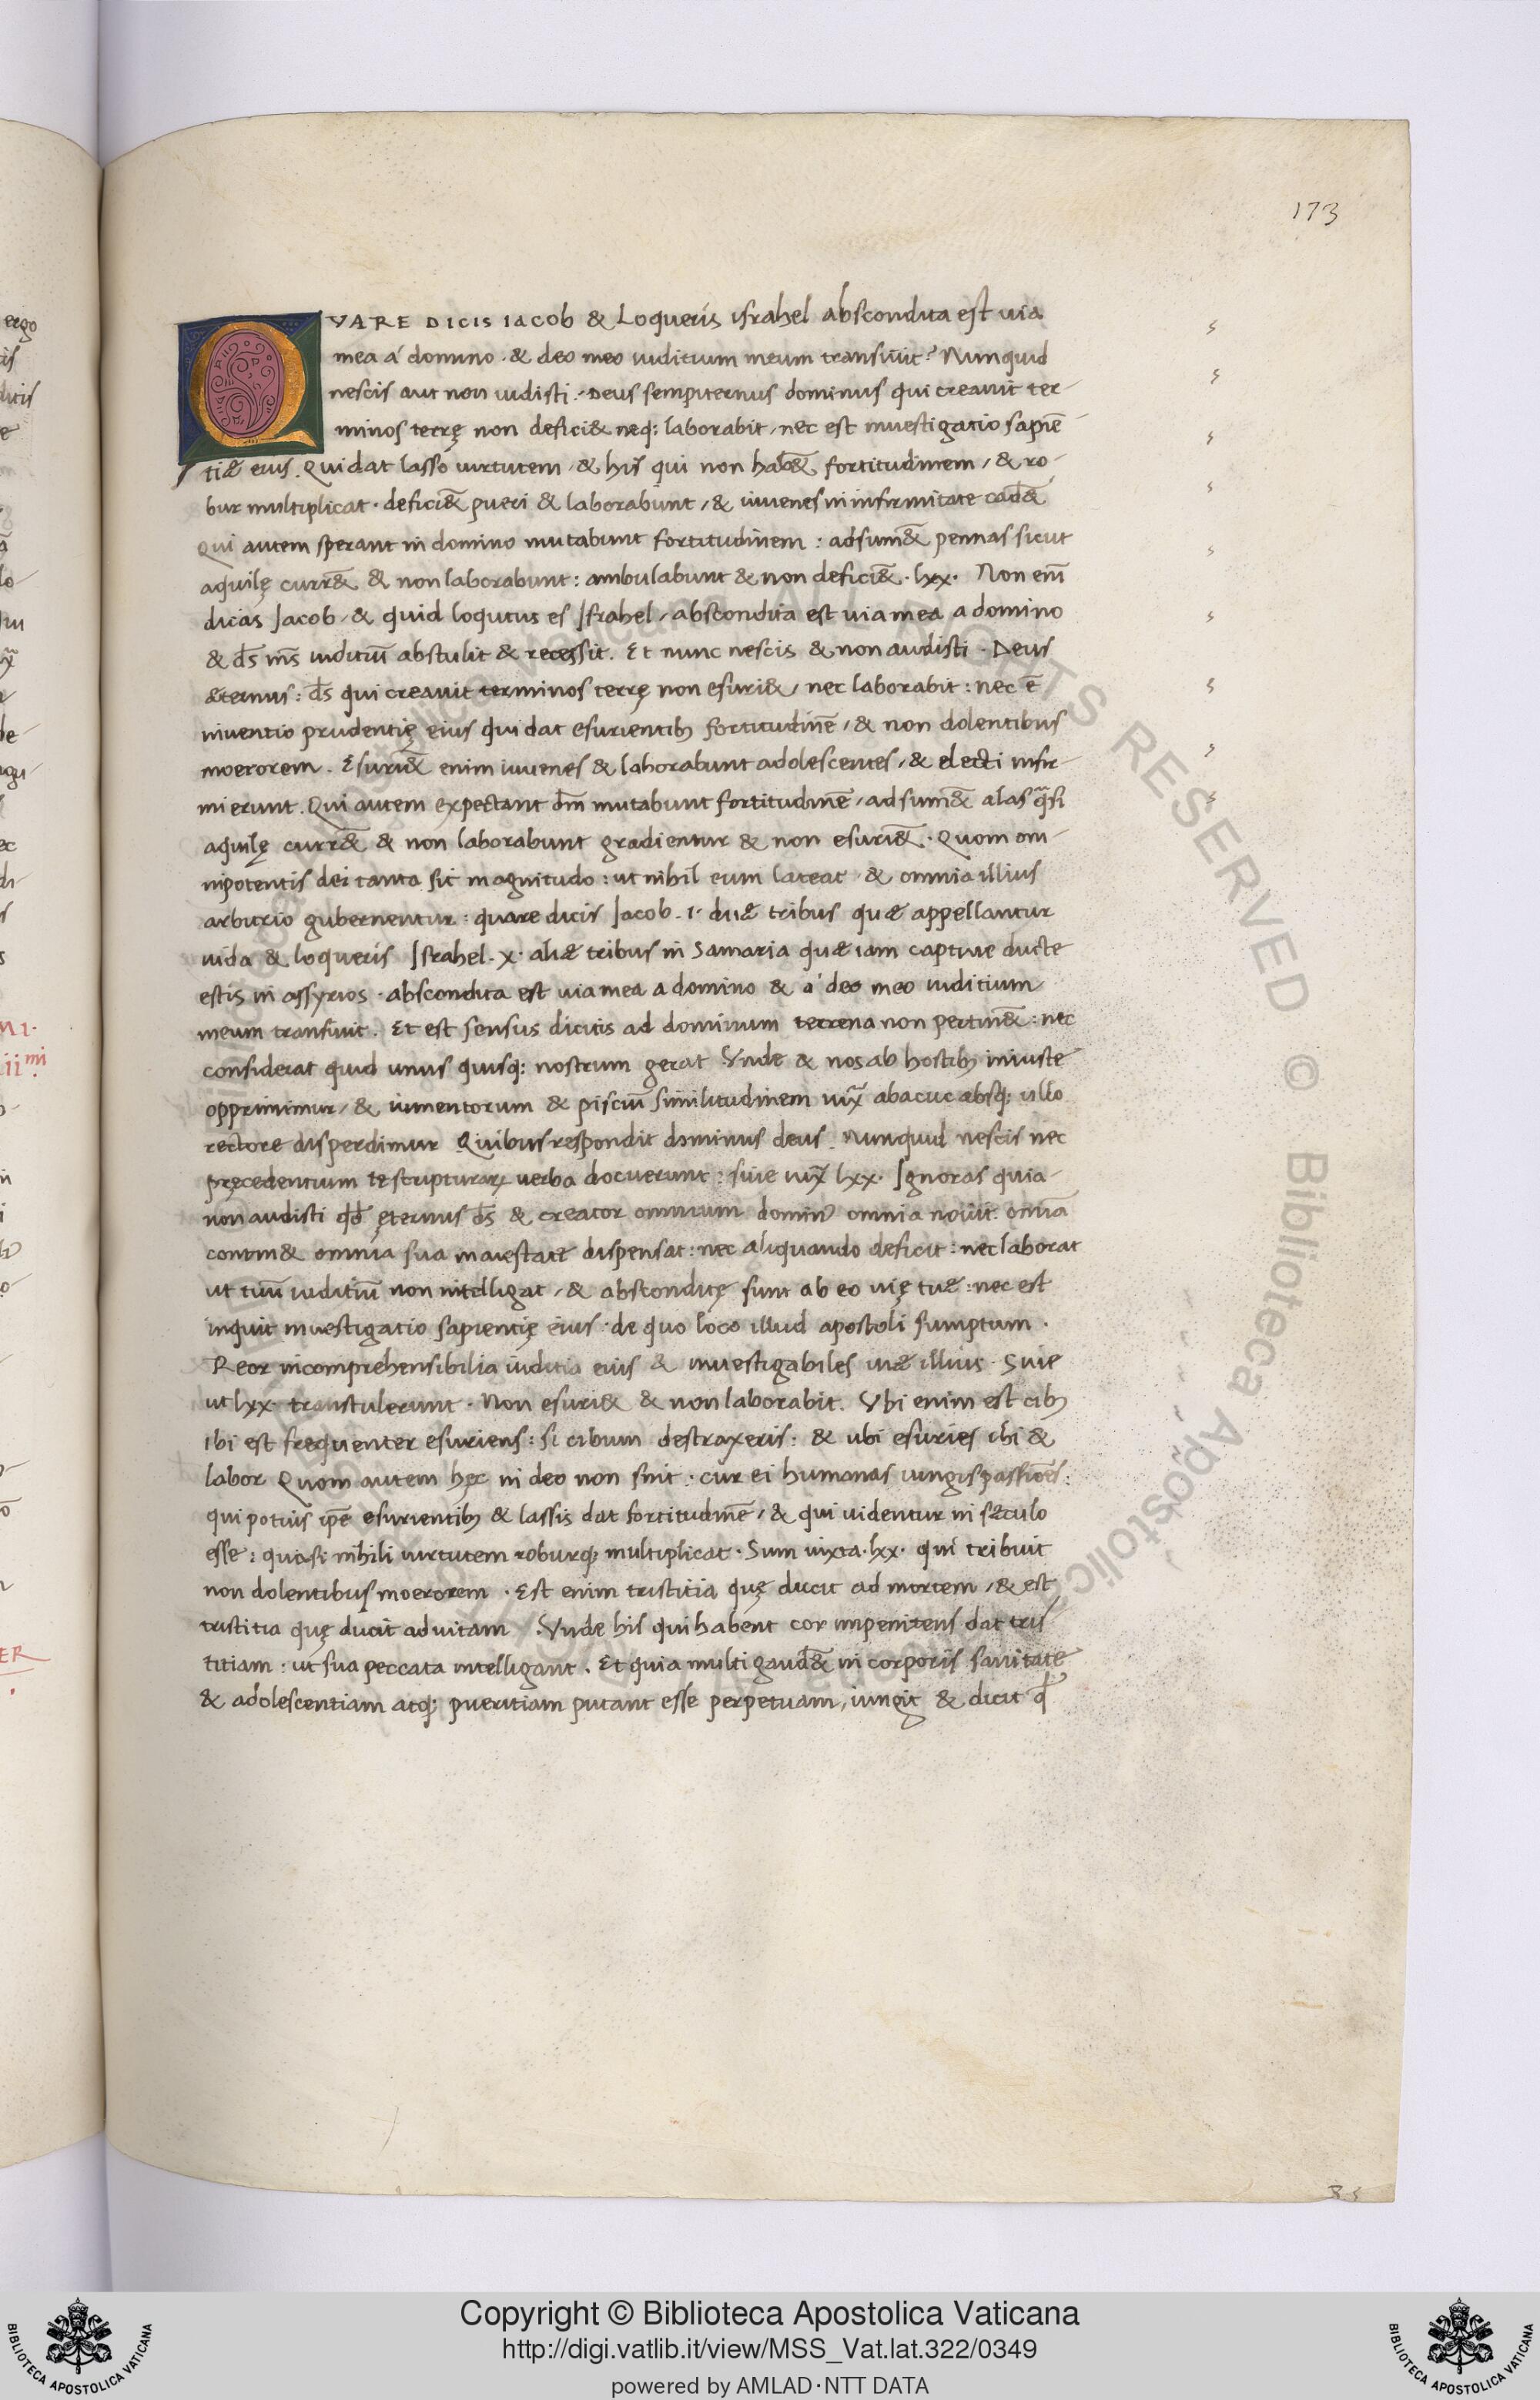 173
QVARE DICIS IACOb & Loqueris israhel abscondita est uia
mea á domino . & deo meo iuditium meum transiuit? Nunquid
nescis aut non audisti . Deus sempiternus dominus qui creauit ter-
minos terrę non defici& neq; laborabit, nec est inuestigatio sapiē
tiæ eius. Qui dat lasso uirtutem & his qui non hab& fortitudinem, & ro-
bur multiplicat . defici&̄ pueri & laborabunt, & iuuenes in infirmitate cad&̄
Qui autem sperant in domino mutabunt fortitudinem : adsum&̄ pennas sicut
aquilę curr&̄ & non laborabunt : ambulabunt & non defici&̄ . lxx . Non eni̅
dicas Jacob, & quid loqutus es Israhel, abscondita est uia mea a domino
& ds̅ ms̅ iuditiū abstulit & recessit. Et nunc nescis & non audisti . Deus
&ternus : ds̅ qui creauit terminos terrę non esuri&, nec laborabit : nec ē
inuentio prudentię eius qui dat esurientib; fortitudinē, & non dolentibus
moerorem . Esuri&̄ enim iuuenes & laborabunt adolescentes, & electi infir-
mi erunt . Qui autem expectant dm̅ mutabunt fortitudinē, adsum&̄ alas q̄si
aquilę curr&̄ & non laborabunt gradientur & non esuri&̄ . Quom om-
nipotentis dei tanta sit magnitudo : ut nihil eum lateat & omnia illius
arbitrio gubernentur : quare dicis Jacob . i . duæ tribus quæ appellantur
iuda & loqueris Israhel . x . aliæ tribus in Samaria quæ iam captiue ducte
estis in assyrios . abscondita est uia mea a domino & a deo meo iuditium
meum transiuit . Et est sensus dicitis ad dominum terrena non pertin& : nec
considerat quid unus quisq; nostrum gerat Vnde & nos ab hostib; iniuste
opprimimur, & iumentorum & pisciū similitudinem iux̄ abacuc absq; ullo
rectore disperdimur Quibus respondit dominus deus . Nunquid nescis nec
pręcedentium te scripturaꝝ uerba docuerunt : siue iux̄ lxx . Ignoras quia
non audisti qd̅ ęternus ds̅ & creator omnium domin' omnia nouit . omīa
contin& omnia sua maiestate dispensat : nec aliquando deficit : nec laborat
ut tuū iuditiū non intelligat, & absconditę sunt ab eo uię tuæ : nec est
inquit inuestigatio sapientię eius . de quo loco illud apostoli sumptum .
Reor incomprehensibilia iuditia eius & inuestigabiles uiæ illius . Siue
ut lxx . transtulerunt . Non esuri& & non laborabit . Vbi enim est cib;
ibi est frequenter esuriens : si cibum destraxeris : & ubi esuries ibi &
labor Quom autem hęc in deo non sint . cur ei humanas iungis passiōes :
qui potius ip̄e esurientib; & lassis dat fortitudinē, & qui uidentur in sæculo
esse : quasi nihili uirtutem roburq; multiplicat . Sum iuxta . lxx . qui tribuit
non dolentibus moerorem . Est enim tristitia quę ducit ad mortem, & est
tristitia quę ducit ad uitam . Vnde his qui habent cor impenitens dat tris
titiam : ut sua peccata intelligant . Et quia multi gaud&̄ in corporis sanitate
& adolescentiam atq; pueritiam putant esse perpetuam, iungit & dicit q̄
Copyright © Biblioteca Apostolica Vaticana
http://digi.vatlib.it/view/MSS_Vat.lat.322/0349
powered by AMLAD·NTT DATA
BIBLIOTECA APOSTOLICA VATICANA
BIBLIOTECA APOSTOLICA VATICANA